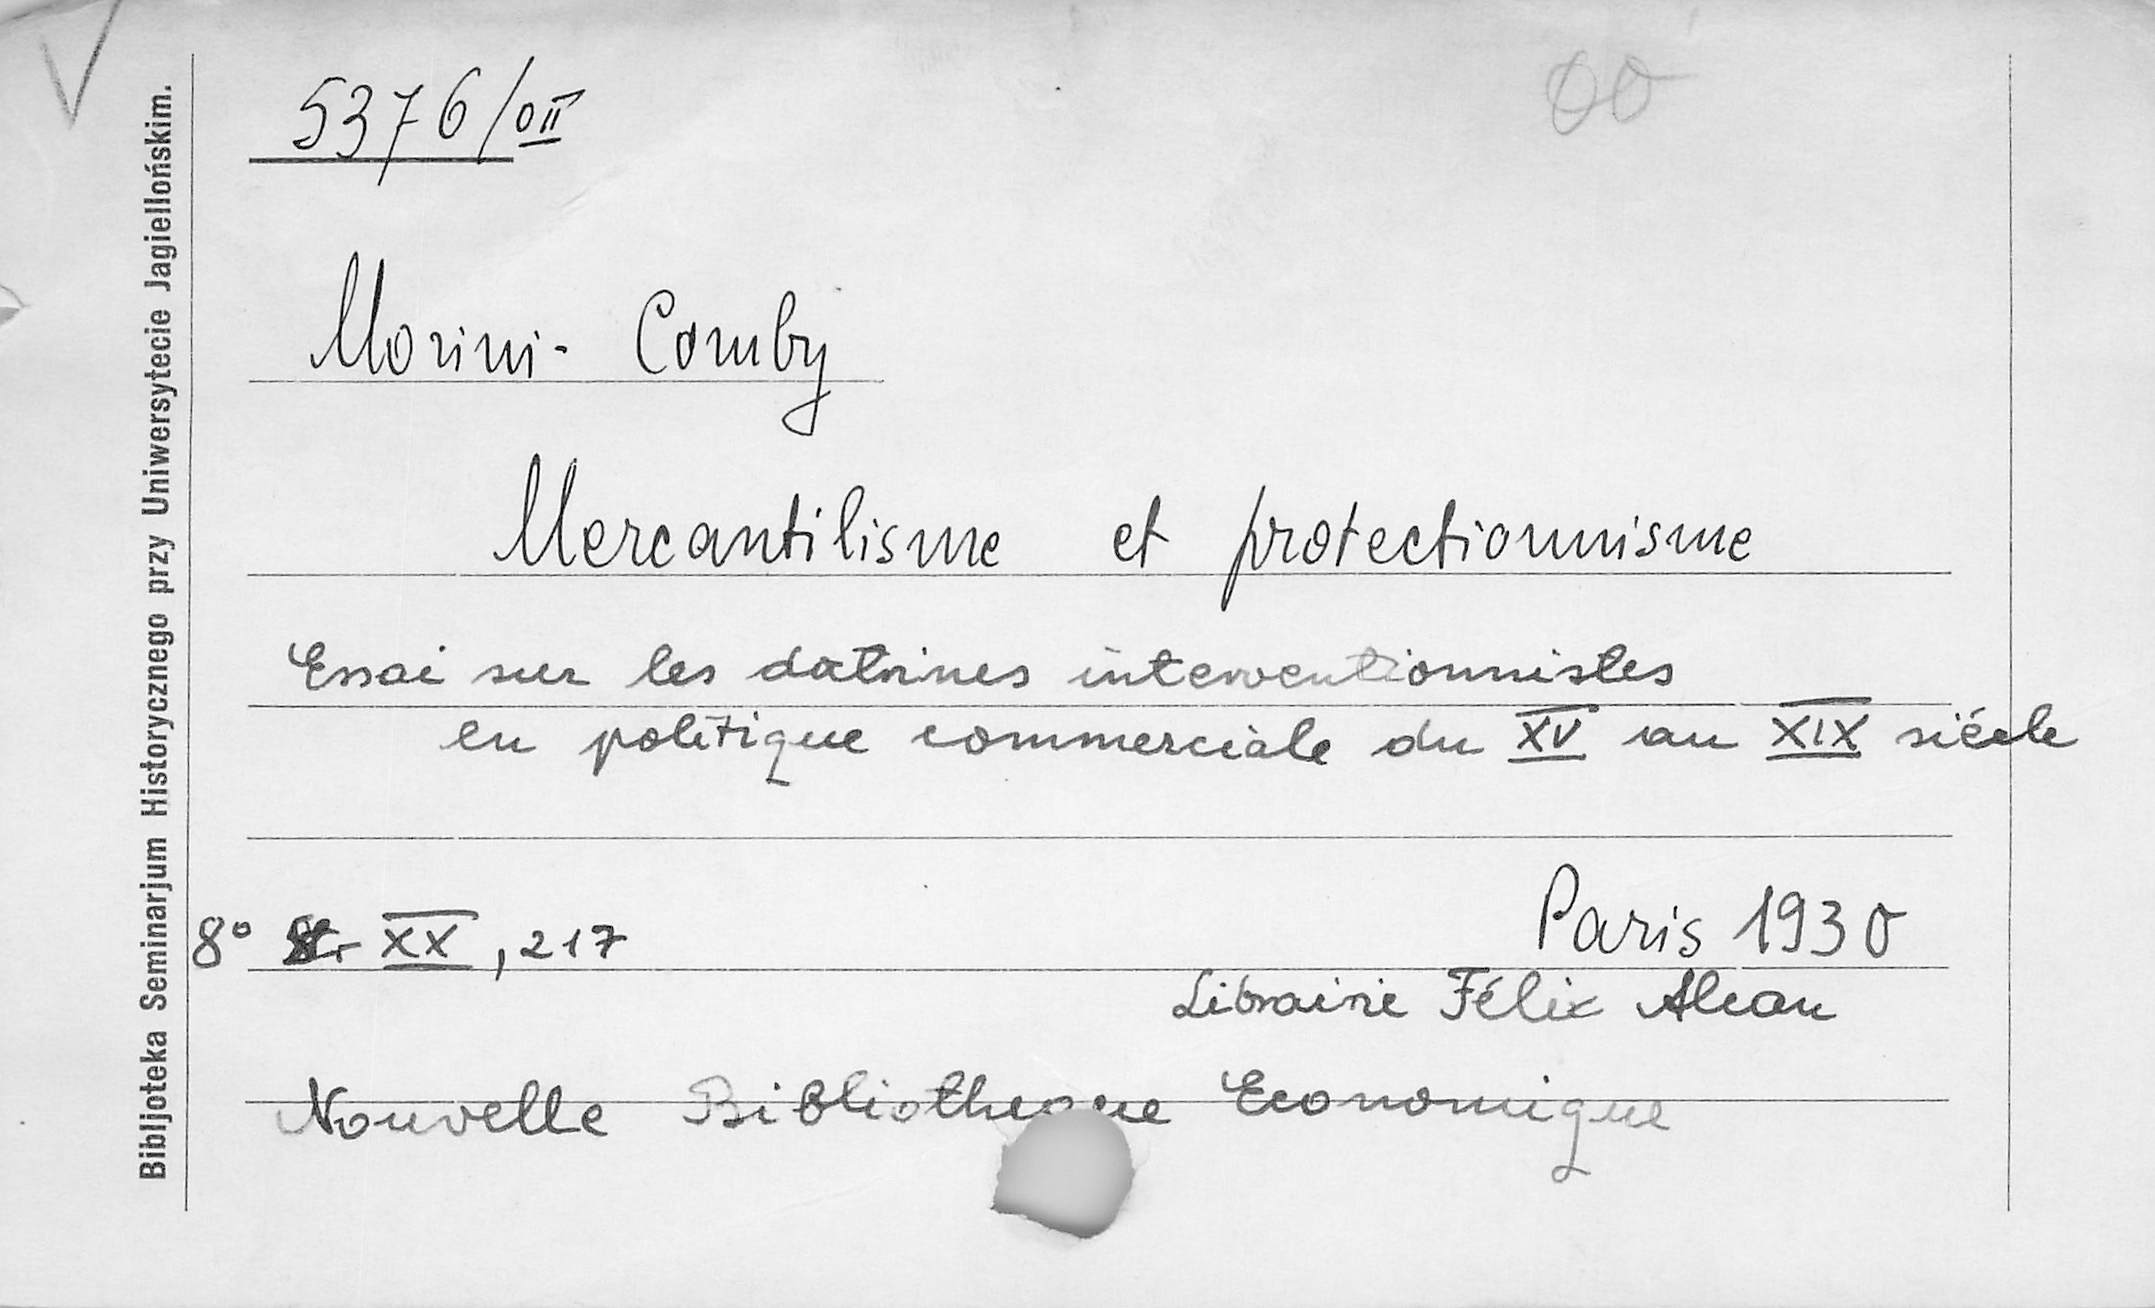 Bibljoteka Seminarjum Historycznego przy Uniwersytecie Jagiellońskim.
5376/0II
00
Morini- Comby
Mercantilisme et protectionnisme
Essai sur les doctrines interventionnistes
en politique commerciale du XV au XIX siécle
8° XX, 217
Paris 1930
Librairie Félix Alcan
Nouvelle Economique